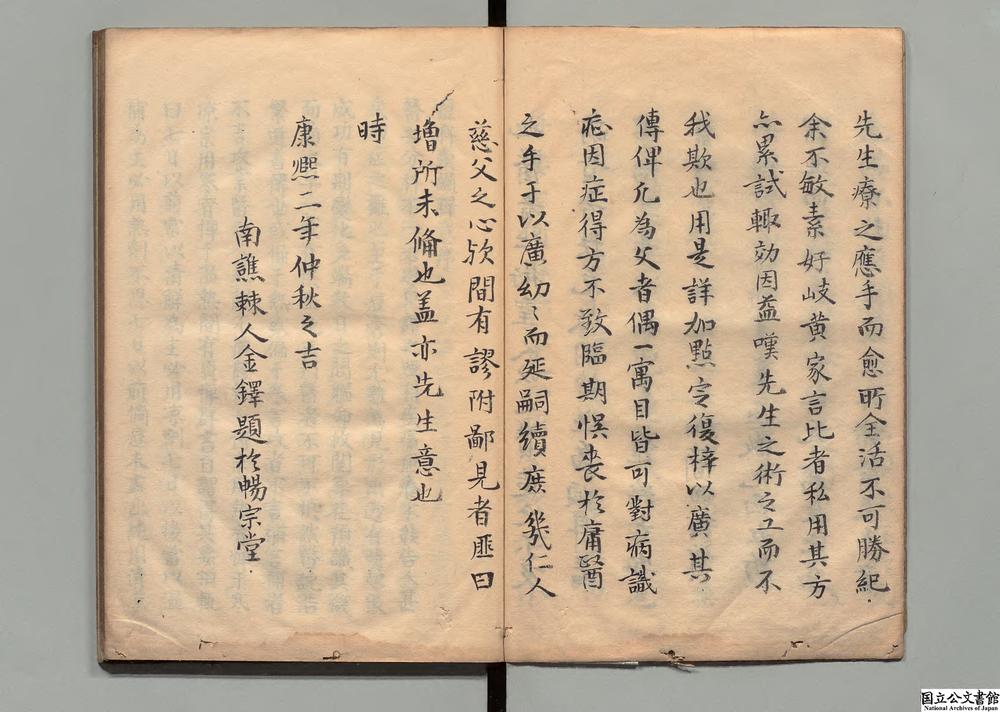 先生療之應手而愈所全活不可勝紀
余不敏素好岐黄家言比者私用其方
亦累試輙効因益嘆先生之術之工而不
我欺也用是詳加㸃定復梓以廣其
傳俾凡為父者偶一寓目皆可對病識
症因症得方不致臨期悞丧於庸醫
之手于以廣幼〻而延嗣續庶幾仁人
慈父之心欤間有謬附鄙見者匪曰
增所未俻也盖亦先生意也
時
康熈二年仲秋之吉
南譙棘人金鐸題於暢宗堂
国立公文書館
National Archives of Japan